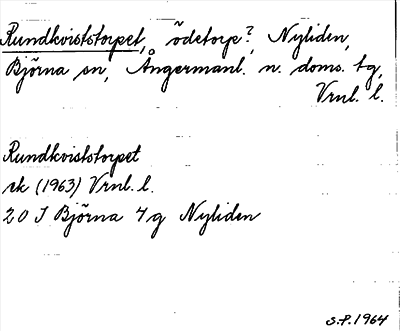 Rundkviststorpet, ödetorp?, Nyliden,
Björna sn, Ångermanl. n. doms. tg,
Vrnl. l.
Rundkviststorpet
rk (1963) Vrnl. l.
20 J Björna 4g Nyliden
S.P. 1964